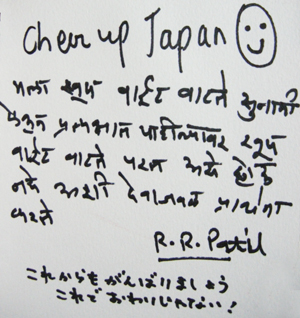 Cheer up Japan
मला खुप वाईट वाटते सुनामी
प्रत्यक्षात पाहील्यावर खुप
वाईट वाटते परत असे होऊ
नये अशी देवाजवळ प्रार्थना
करते
R. R. Patil
これからもがんばりましょう
これでおわりじゃない!